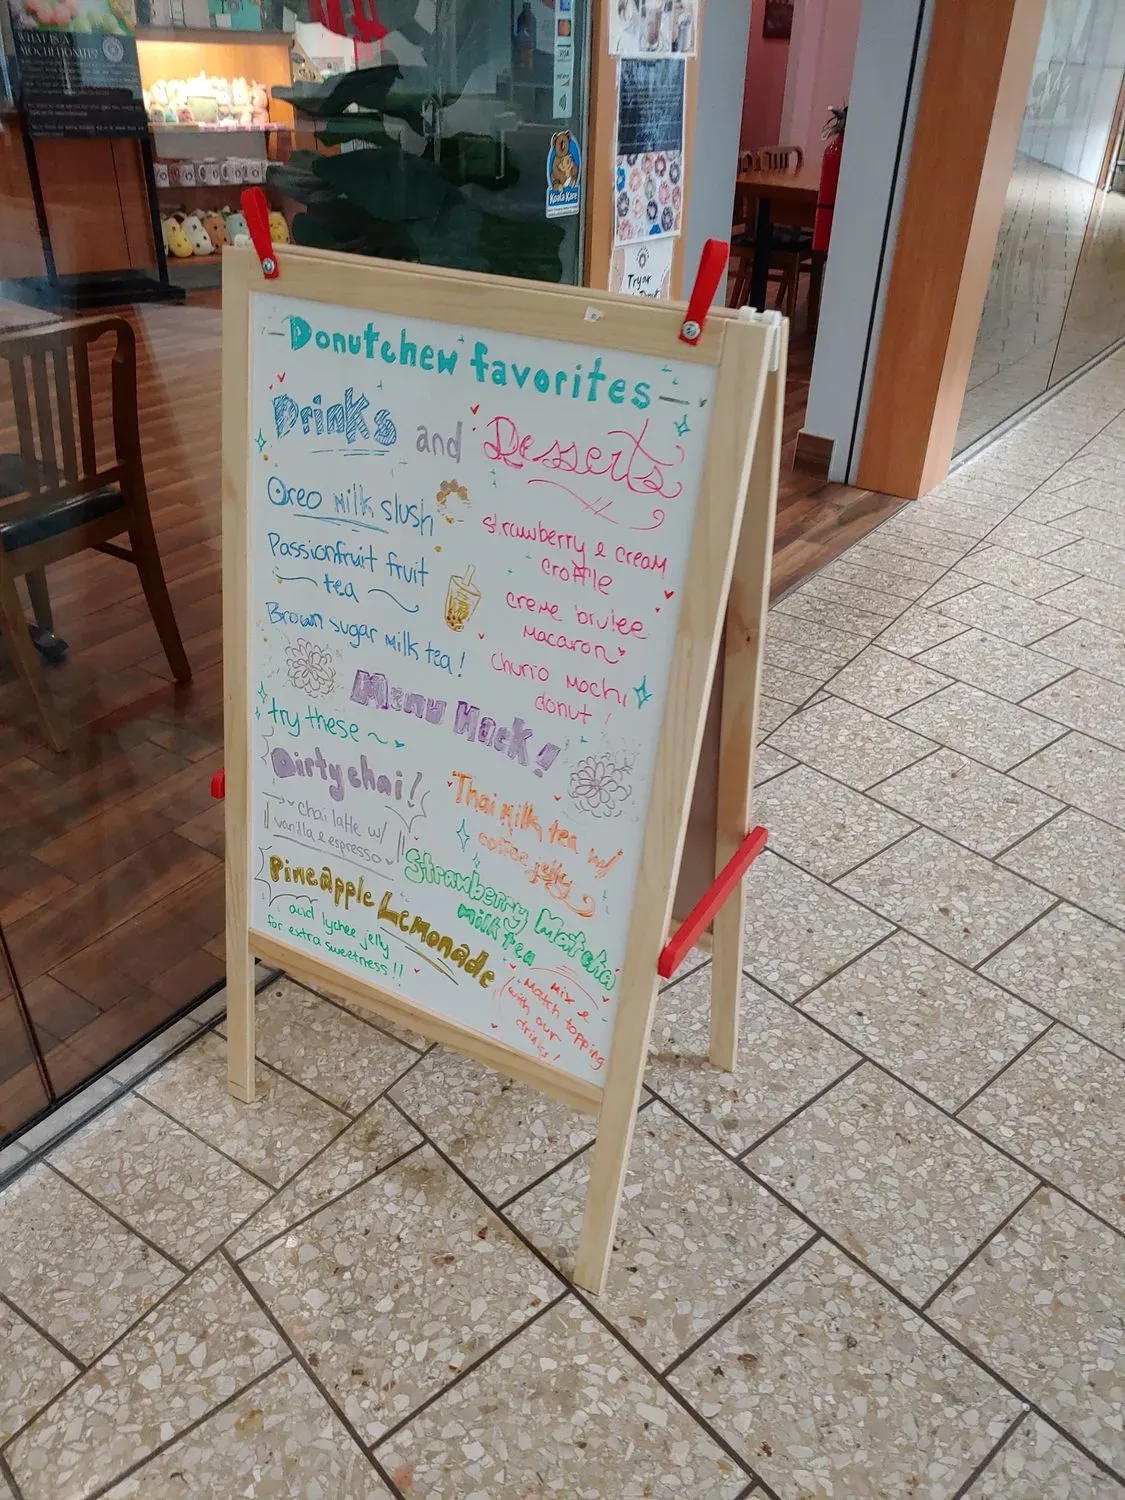 WHAT IS A
MOCHI DONUT?
VISA
Koala Kare
Try our
Donutchew favorites
Drinks and Desserts
Oreo milk slush
Passionfruit fruit
tea
Brown sugar milk tea!
strawberry & cream
croffle
creme brulee
macaron
churro mochi
donut!
Menu Hack!
try these ~
Dirty chai!
chai latte w/
vanilla & espresso
Thai milk tea w/
coffee jelly
Strawberry Matcha
milk tea
Pineapple Lemonade
add lychee jelly
for extra sweetness!!
Mix &
match topping
with our
drinks!